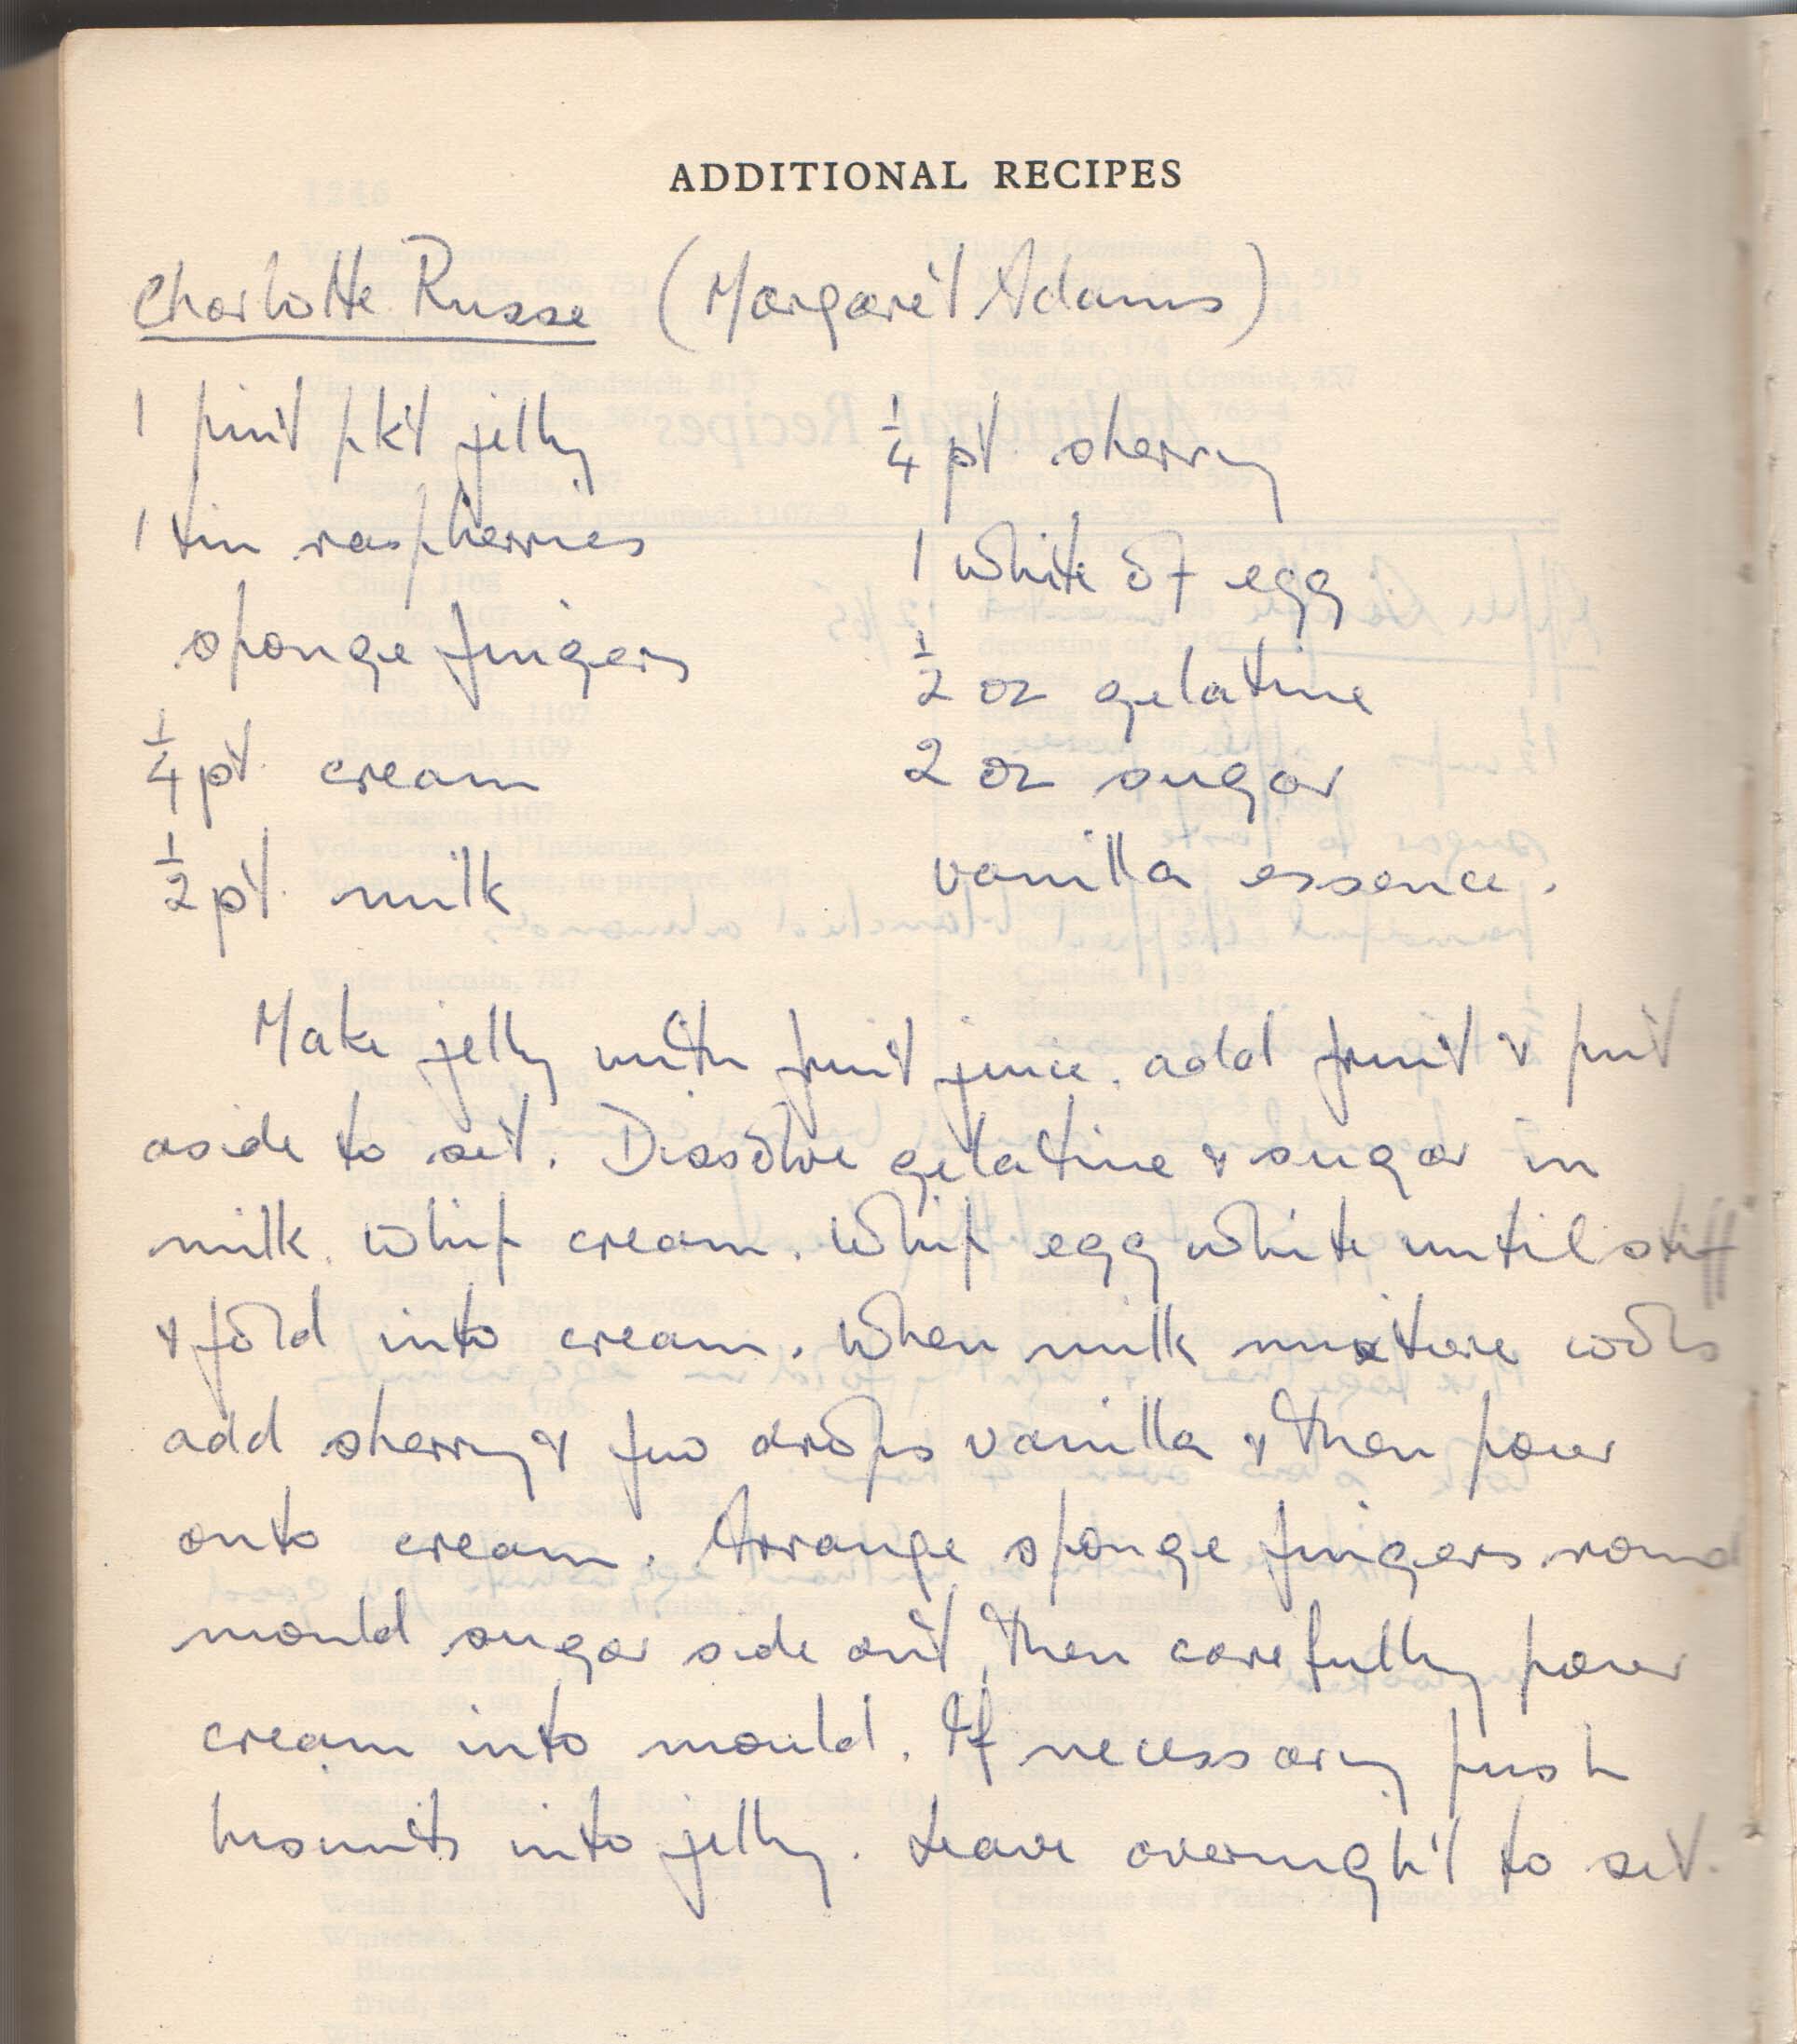 ADDITIONAL RECIPES
Charlotte Russe (Margaret Adams)
1 pint pkt jelly
1 tin raspberries
sponge fingers
1/4 pt. cream
1/2 pt. milk
1/4 pt. sherry
1 white of egg
1/2 oz gelatine
2 oz sugar
vanilla essence.
Make jelly with fruit juice. add fruit & put
aside to set. Dissolve gelatine & sugar in
milk. Whip cream. Whip egg white until stiff
& fold into cream. When milk mixture cools
add sherry & few drops vanilla & then pour
onto cream. Arrange sponge fingers round
mould sugar side out, then carefully pour
cream into mould. If necessary push
biscuits into jelly. Leave overnight to set.